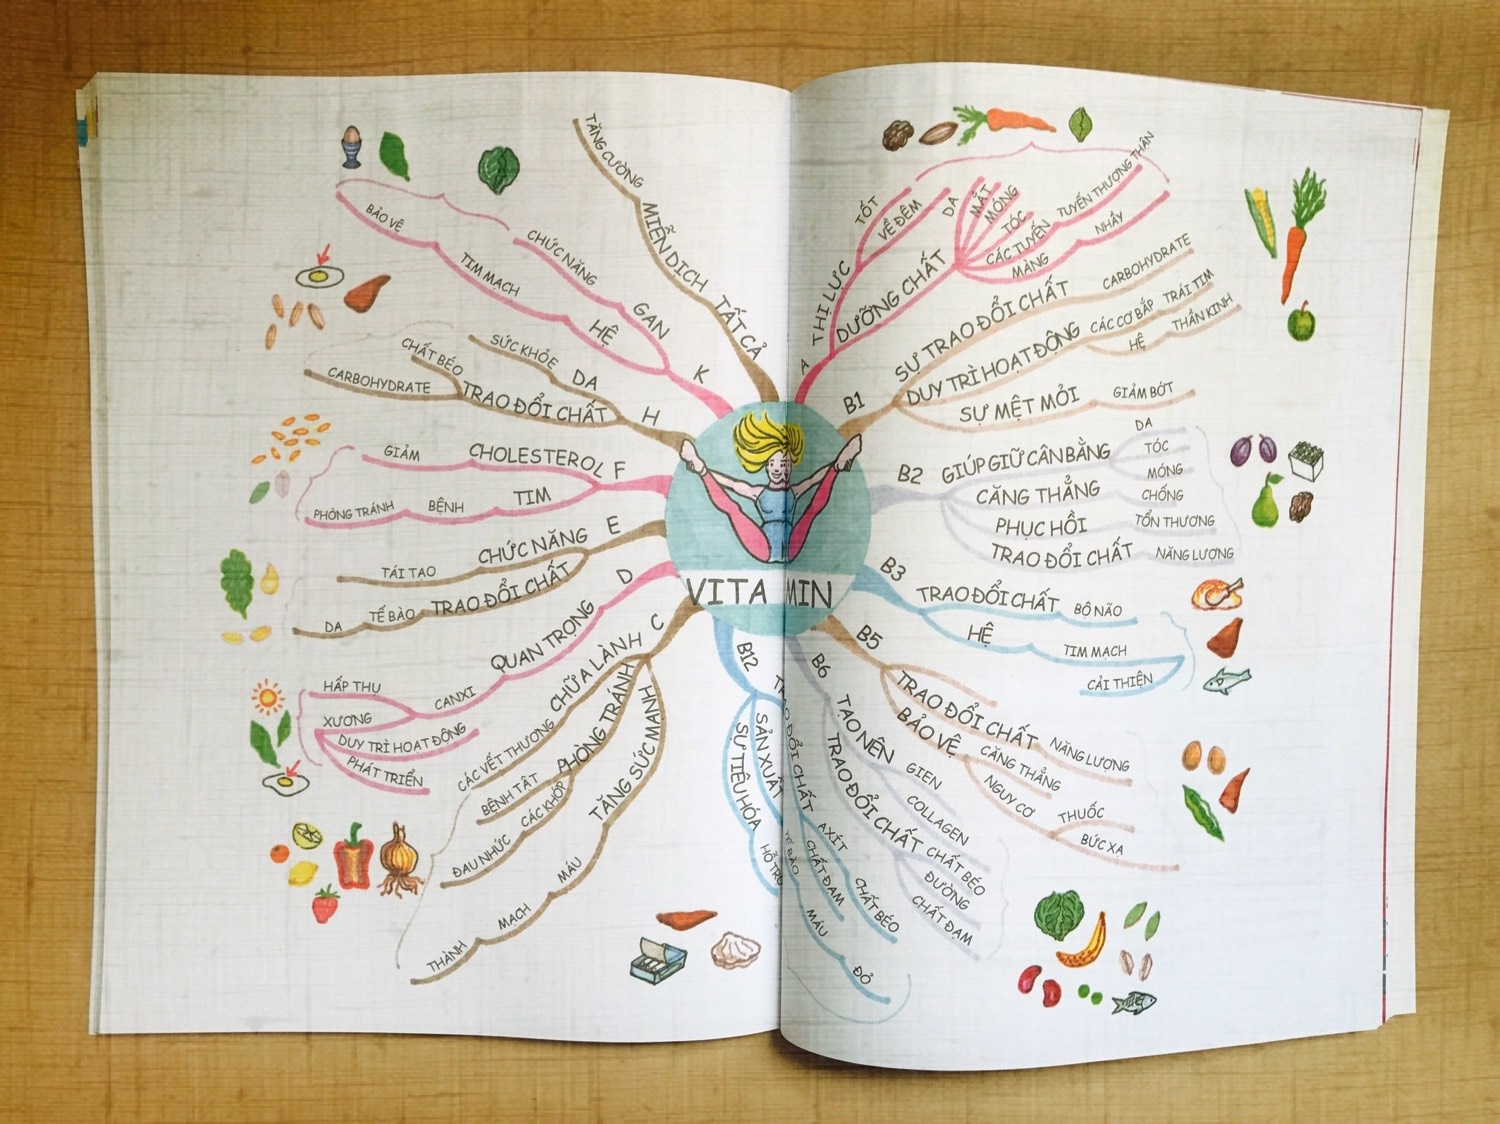 VITAMIN
TẤT CẢ
MIỄN DỊCH
TĂNG CƯỜNG
A
THỊ LỰC
TỐT
VỀ ĐÊM
DƯỠNG CHẤT
DA
MẮT
MÓNG
TÓC
CÁC TUYẾN
TUYẾN THƯỢNG THẬN
MÀNG
NHẦY
B1
SỰ TRAO ĐỔI CHẤT
CARBOHYDRATE
DUY TRÌ HOẠT ĐỘNG
CÁC CƠ BẮP
TRÁI TIM
HỆ
THẦN KINH
SỰ MỆT MỎI
GIẢM BỚT
B2
GIÚP GIỮ CÂN BẰNG
DA
TÓC
MÓNG
CĂNG THẲNG
CHỐNG
PHỤC HỒI
TỔN THƯƠNG
TRAO ĐỔI CHẤT
NĂNG LƯƠNG
B3
TRAO ĐỔI CHẤT
BỘ NÃO
HỆ
TIM MẠCH
CẢI THIỆN
B5
TRAO ĐỔI CHẤT
NĂNG LƯỢNG
BẢO VỆ
CĂNG THẲNG
NGUY CƠ
THUỐC
BỨC XẠ
B6
TẠO NÊN
GIEN
COLLAGEN
TRAO ĐỔI CHẤT
CHẤT BÉO
ĐƯỜNG
CHẤT ĐẠM
B12
TRAO ĐỔI CHẤT
AXÍT
CHẤT BÉO
CHẤT ĐẠM
SẢN XUẤT
TẾ BÀO
MÁU
ĐỎ
SỰ TIÊU HÓA
HỖ TRỢ
C
CHỮA LÀNH
CÁC VẾT THƯƠNG
PHÒNG TRÁNH
BỆNH TẬT
CÁC KHỚP
ĐAU NHỨC
TĂNG SỨC MẠNH
MÁU
MẠCH
THÀNH
D
QUAN TRỌNG
CANXI
HẤP THU
XƯƠNG
DUY TRÌ HOẠT ĐỘNG
PHÁT TRIỂN
E
CHỨC NĂNG
TÁI TẠO
TRAO ĐỔI CHẤT
TẾ BÀO
DA
F
CHOLESTEROL
GIẢM
TIM
BỆNH
PHÒNG TRÁNH
H
DA
SỨC KHỎE
TRAO ĐỔI CHẤT
CHẤT BÉO
CARBOHYDRATE
K
GAN
CHỨC NĂNG
HỆ
TIM MẠCH
BẢO VỆ